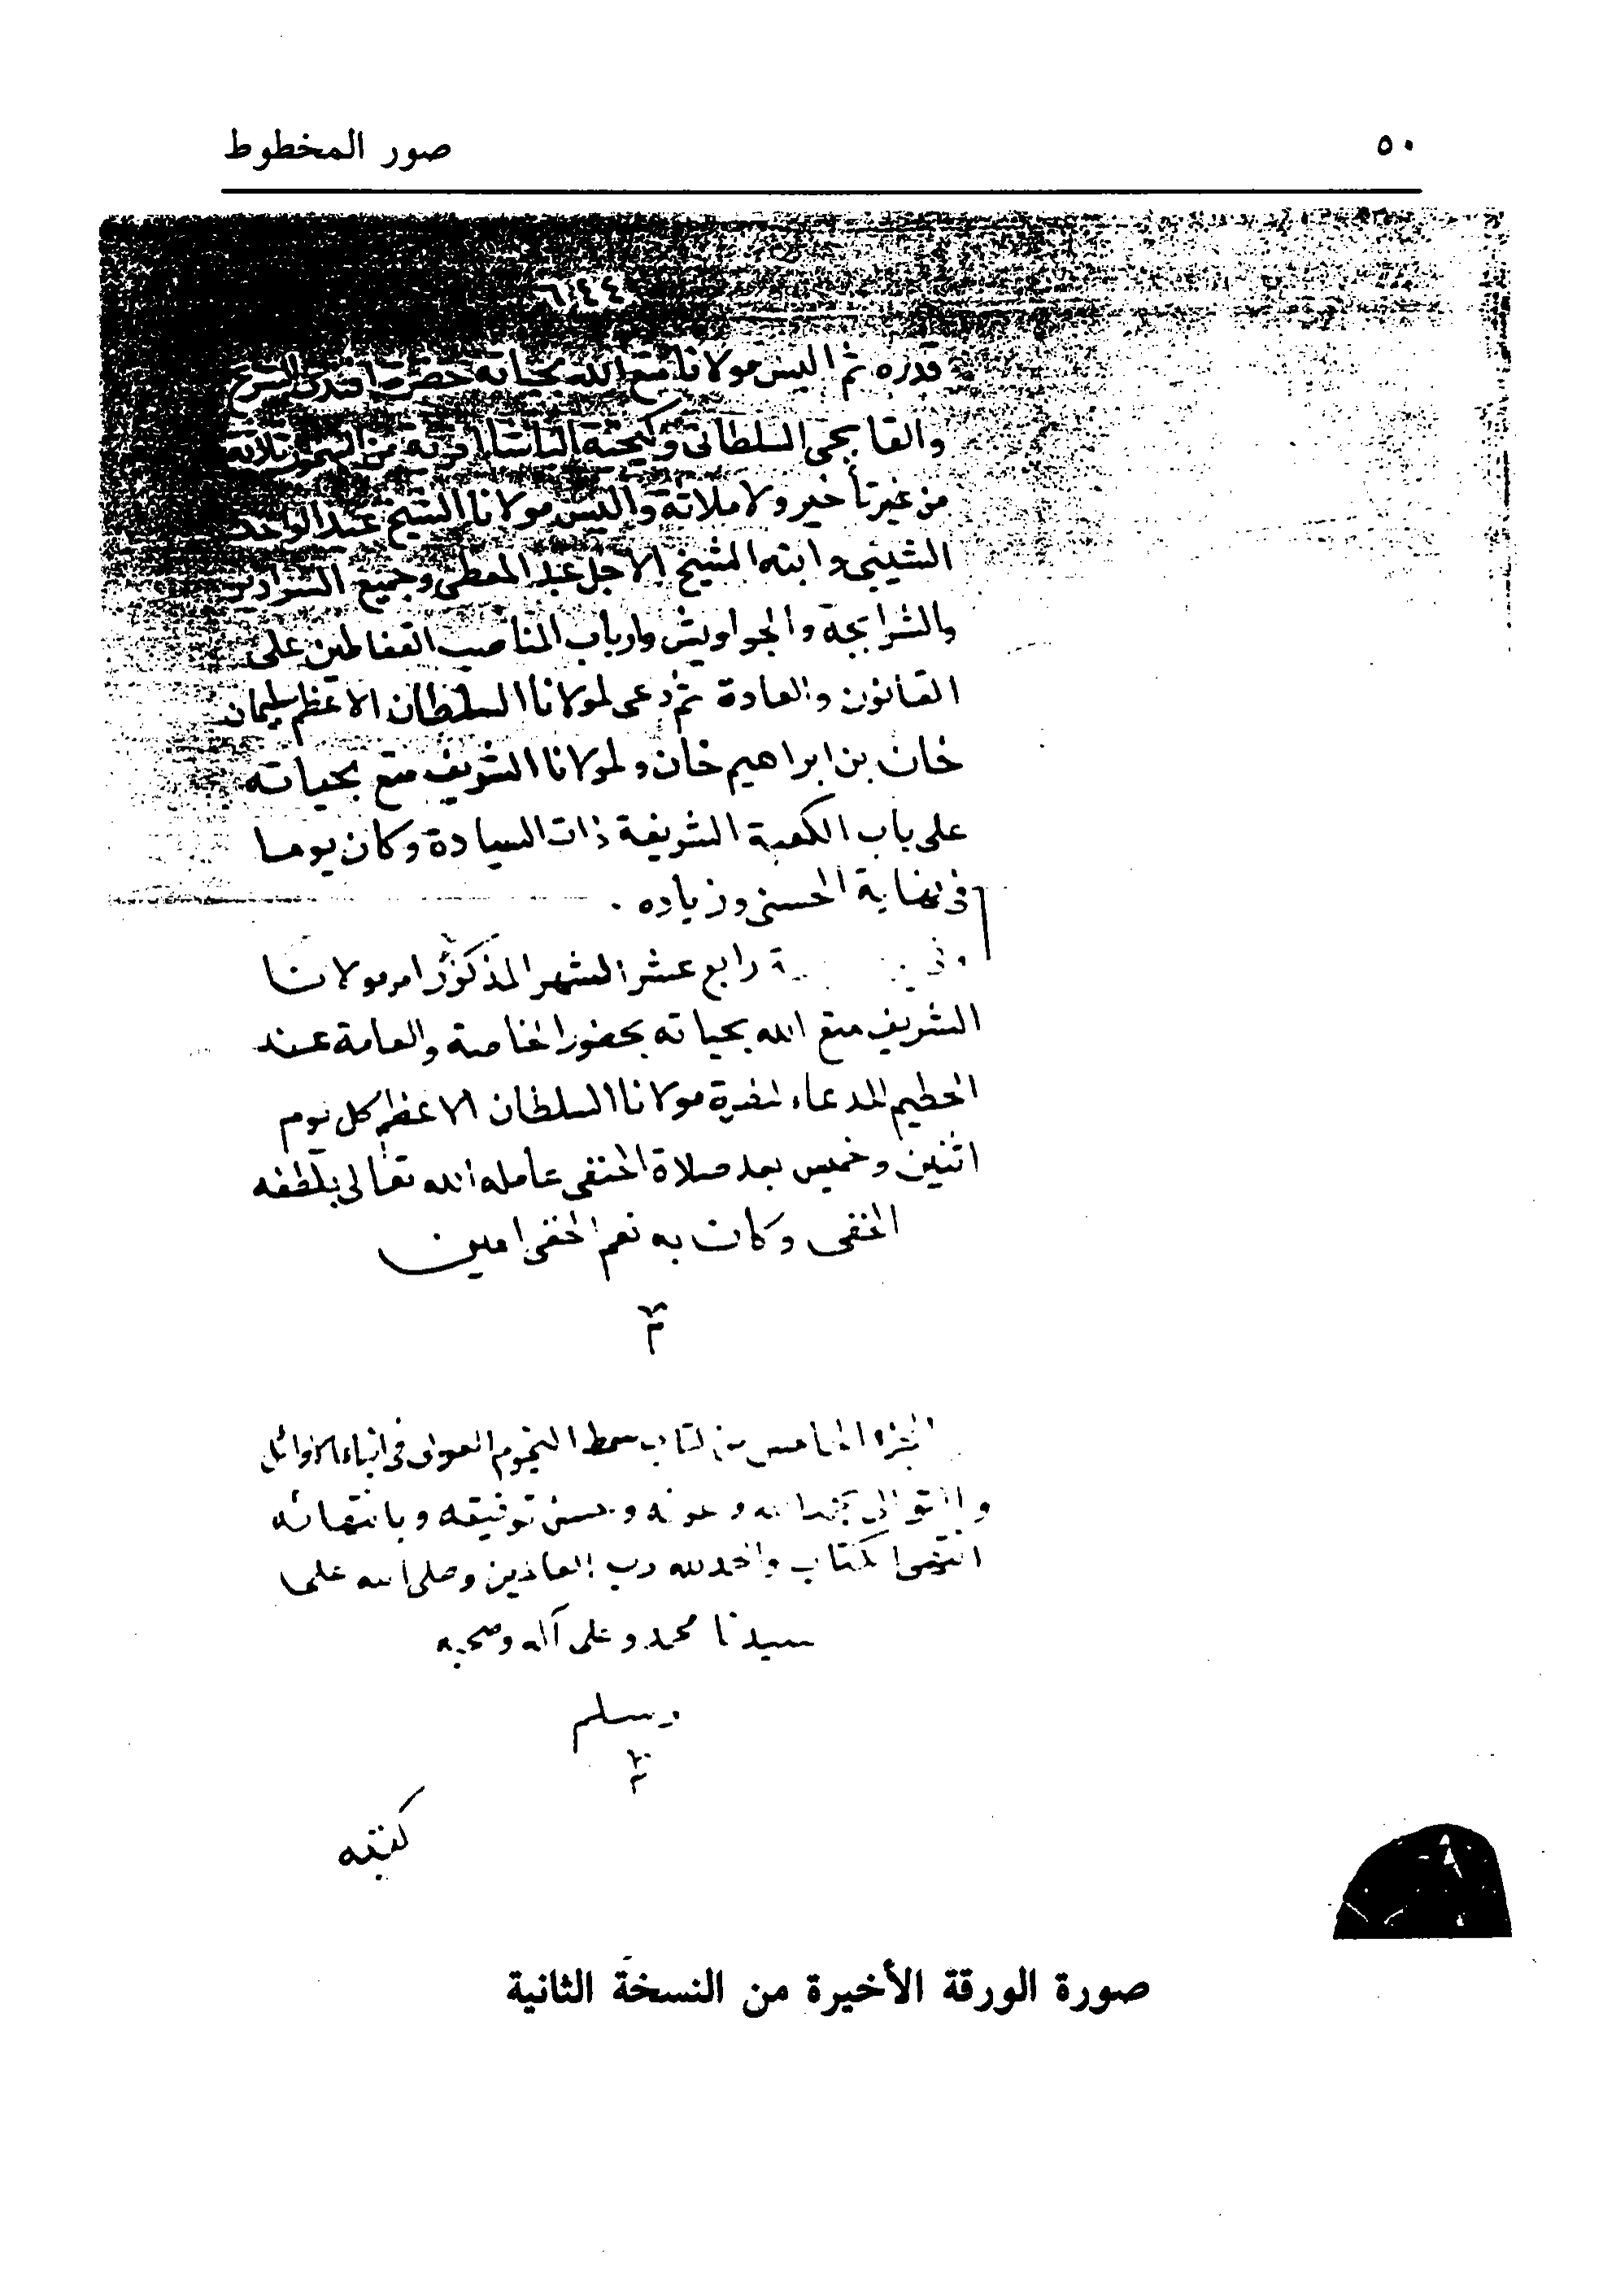 ٥٠
صور المخطوط
قدره ثم البس مولانا متع الله بحياته حضرت افندى الشرع
والقابجى السلطانى وكيخية الباشا افرية من السمور ثلاثة
من غير تأخير ولا ملاتة والبس مولانا الشيخ عبد الواحد
الشيبى وابنه الشيخ الاجل عبد المعطى وجميع السرادير
والشرابجة والجواويش وارباب المناصب القفاطين على
القانون والعادة ثم دعى لمولانا السلطان الاعظم سليمان
خان بن ابراهيم خان ولمولانا الشريف متع بحياته
على باب الكعبة الشريفة ذات السيادة وكان يوما
فى نهاية الحسنى وزياده
رابع عشر الشهر المذكور امر مولانا
الشريف متع الله بحياته بحضور الخاصة والعامة عند
الحطيم للدعاء لنصرة مولانا السلطان الاعظم كل يوم
اثنين وخميس بعد صلاة الحنفى عامله الله تعالى بلطفه
الخفى وكان به نعم الحفى امين
الجزء الخامس من كتاب سمط النجوم العوالى فى انباء الاوائل
والتوالى بحمد الله وعونه وحسن توفيقه وبانتهائه
انتهى الكتاب والحمد لله رب العالمين وصلى الله على
سيدنا محمد وعلى آله وصحبه
وسلم
كتبه
صورة الورقة الأخيرة من النسخة الثانية